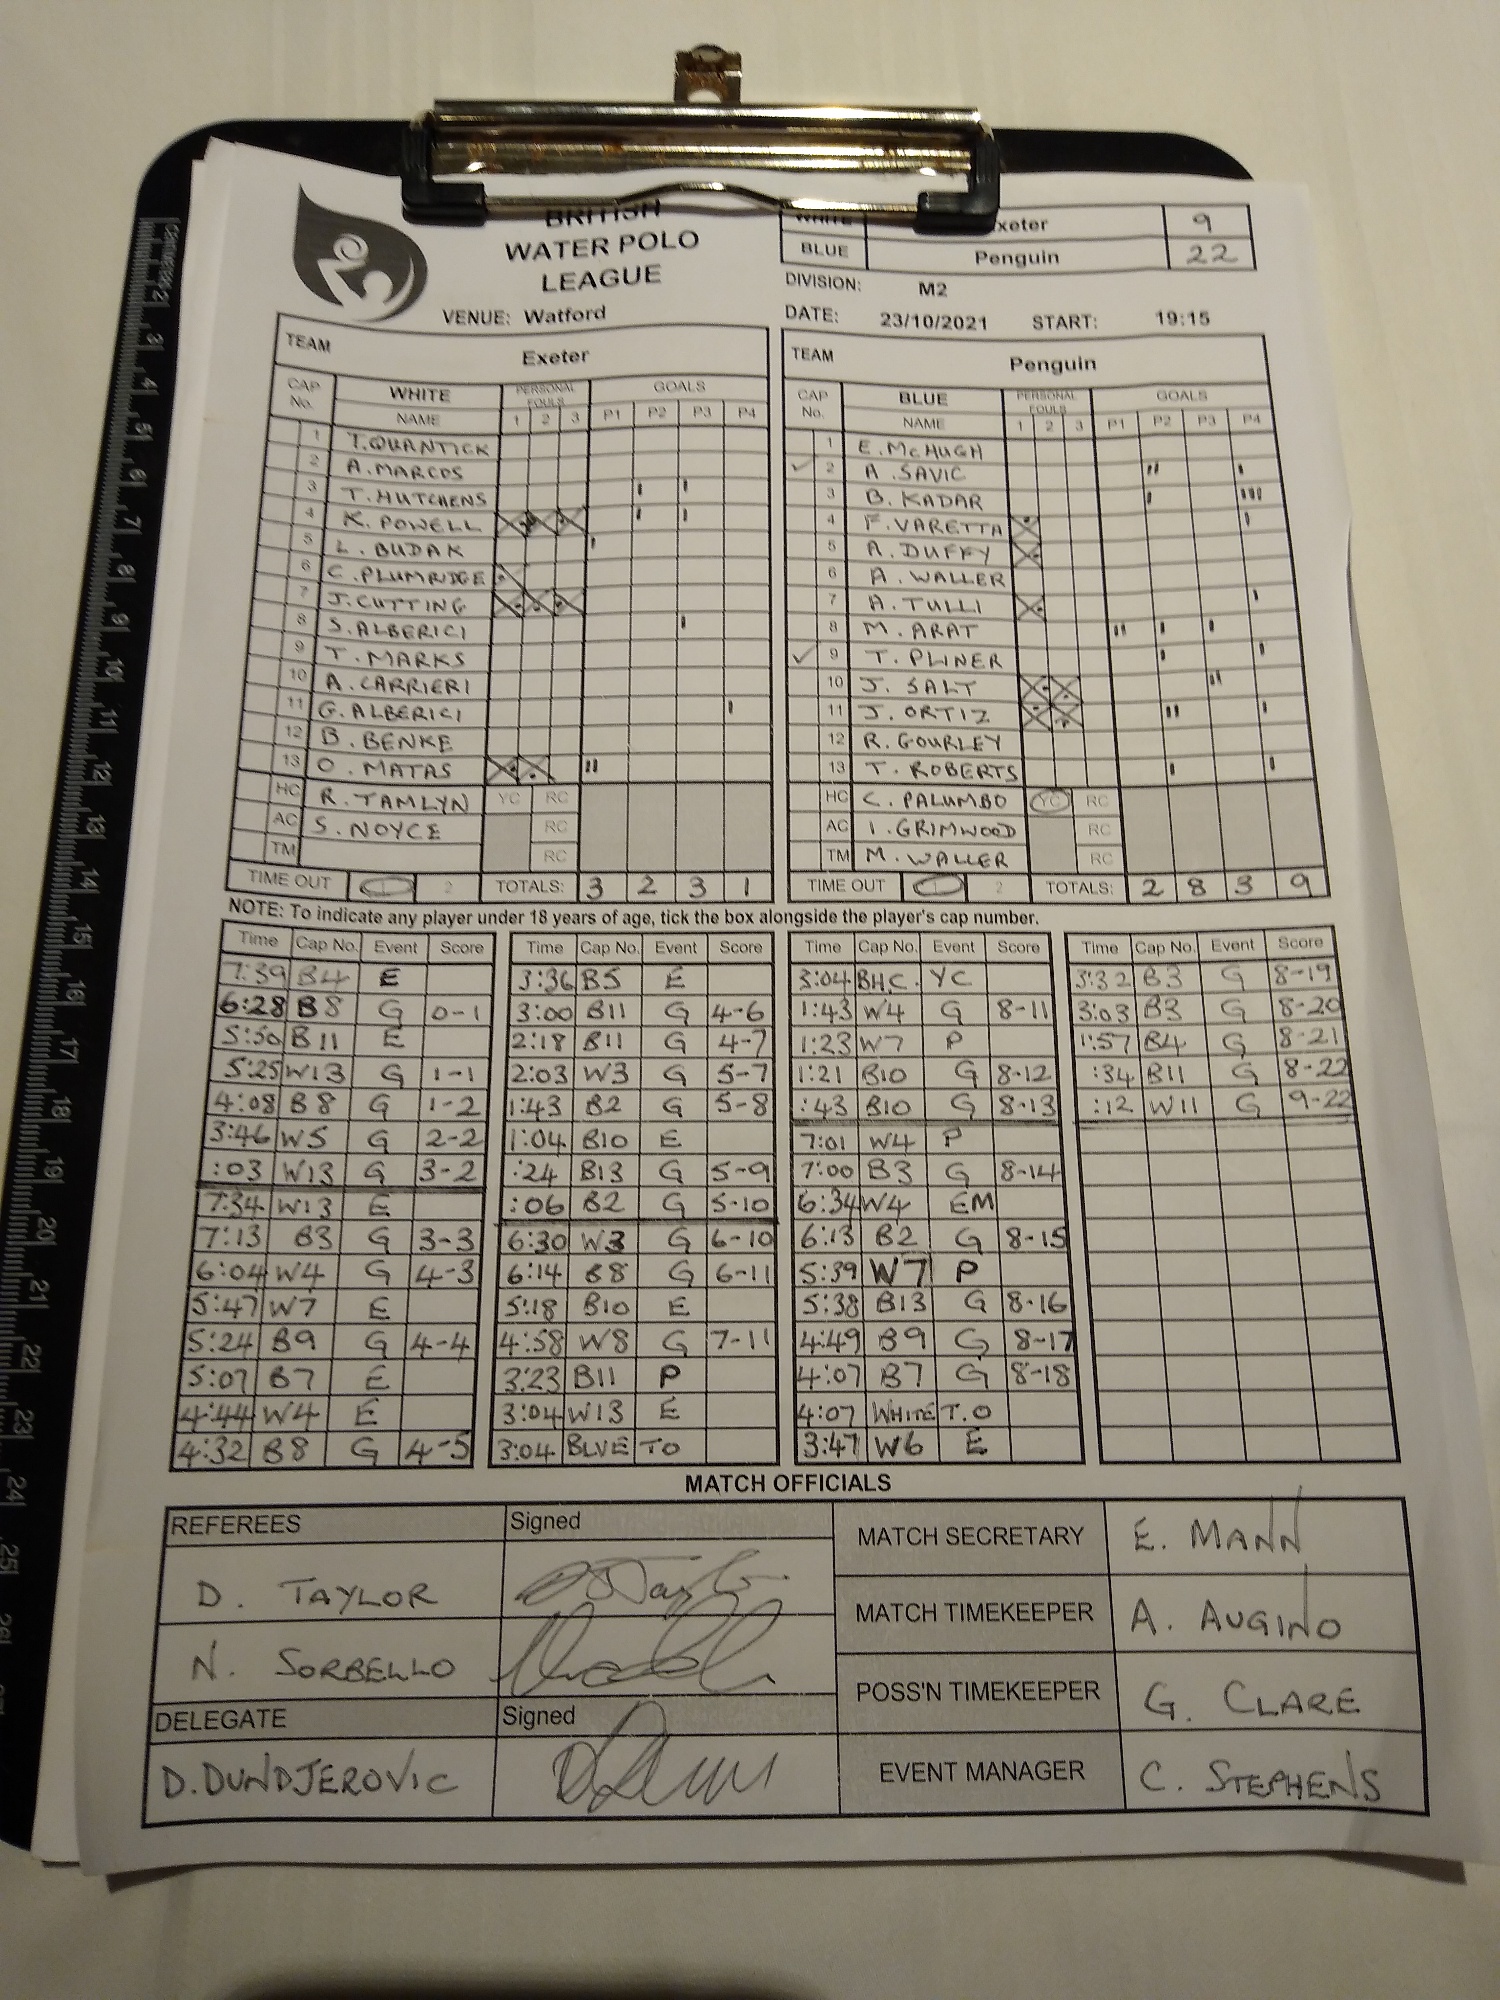 BRITISH
WATER POLO
LEAGUE
WHITE Exeter 9
BLUE Penguin 22
DIVISION: M2
VENUE: Watford DATE: 23/10/2021 START: 19:15
TEAM Exeter
CAP No. WHITE PERSONAL FOULS GOALS
NAME 1 2 3 P1 P2 P3 P4
1 T. QUANTICK
2 A. MARCOS
3 T. HUTCHENS
4 K. POWELL
5 L. BUDAK
6 C. PLUMRIDGE
7 J. CUTTING
8 S. ALBERICI
9 T. MARKS
10 A. CARRIERI
11 G. ALBERICI
12 B. BENKE
13 O. MATAS
HC R. TAMLYN YC RC
AC S. NOYCE RC
TM RC
TIME OUT 1 2 TOTALS: 3 2 3 1
TEAM Penguin
CAP No. BLUE PERSONAL FOULS GOALS
NAME 1 2 3 P1 P2 P3 P4
1 E. McHUGH
2 A. SAVIC
3 B. KADAR
4 F. VARETTA
5 A. DUFFY
6 A. WALLER
7 A. TULLI
8 M. ARAT
9 T. PLINER
10 J. SALT
11 J. ORTIZ
12 R. GOURLEY
13 T. ROBERTS
HC C. PALUMBO YC RC
AC I. GRIMWOOD RC
TM M. WALLER RC
TIME OUT 1 2 TOTALS: 2 8 3 9
NOTE: To indicate any player under 18 years of age, tick the box alongside the player's cap number.
Time Cap No. Event Score
7:39 B4 E
6:28 B8 G 0-1
5:50 B11 E
5:25 W13 G 1-1
4:08 B8 G 1-2
3:46 W5 G 2-2
:03 W13 G 3-2
7:34 W13 E
7:13 B3 G 3-3
6:04 W4 G 4-3
5:47 W7 E
5:24 B9 G 4-4
5:07 B7 E
4:44 W4 E
4:32 B8 G 4-5
Time Cap No. Event Score
3:36 B5 E
3:00 B11 G 4-6
2:18 B11 G 4-7
2:03 W3 G 5-7
1:43 B2 G 5-8
1:04 B10 E
:24 B13 G 5-9
:06 B2 G 5-10
6:30 W3 G 6-10
6:14 B8 G 6-11
5:18 B10 E
4:58 W8 G 7-11
3:23 B11 P
3:04 W13 E
3:04 BLUE TO
Time Cap No. Event Score
3:04 BHC YC
1:43 W4 G 8-11
1:23 W7 P
1:21 B10 G 8-12
:43 B10 G 8-13
7:01 W4 P
7:00 B3 G 8-14
6:34 W4 EM
6:13 B2 G 8-15
5:39 W7 P
5:38 B13 G 8-16
4:49 B9 G 8-17
4:07 B7 G 8-18
4:07 WHITE T.O
3:47 W6 E
Time Cap No. Event Score
3:32 B3 G 8-19
3:03 B3 G 8-20
1:57 B4 G 8-21
:34 B11 G 8-22
:12 W11 G 9-22
MATCH OFFICIALS
REFEREES Signed
D. TAYLOR
N. SORBELLO
DELEGATE Signed
D. DUNDJEROVIC
MATCH SECRETARY E. MANN
MATCH TIMEKEEPER A. AUGINO
POSS'N TIMEKEEPER G. CLARE
EVENT MANAGER C. STEPHENS